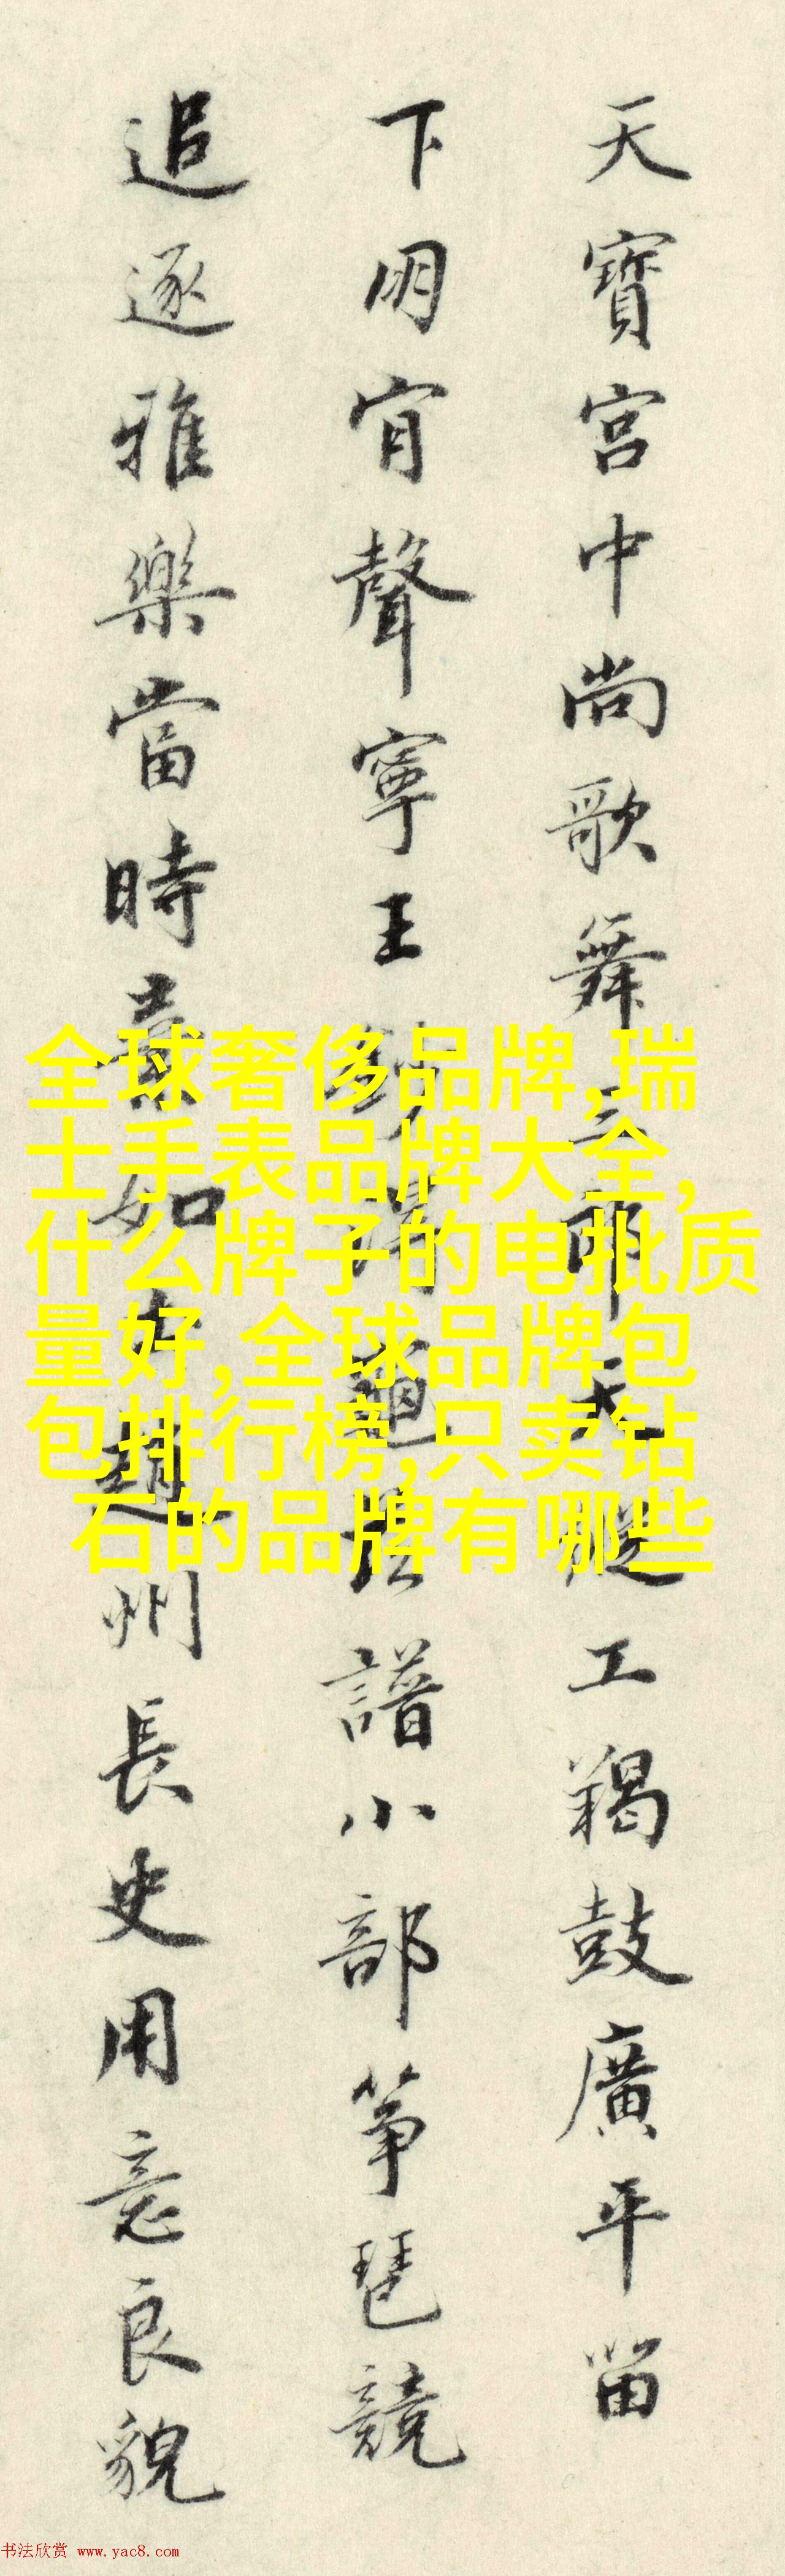 天寶宮中尚歌舞三郎天縱工羯鼓廣平留
下朋肯聲寧王得龜茲譜小部箏琶競
追逐雅樂當時如趙州長史用意良貌
全球奢侈品牌,瑞
士手表品牌大全,
什么牌子的电批质
量好,全球品牌包
包排行榜,只卖钻
石的品牌有哪些
书法欣赏 www.yac8.com